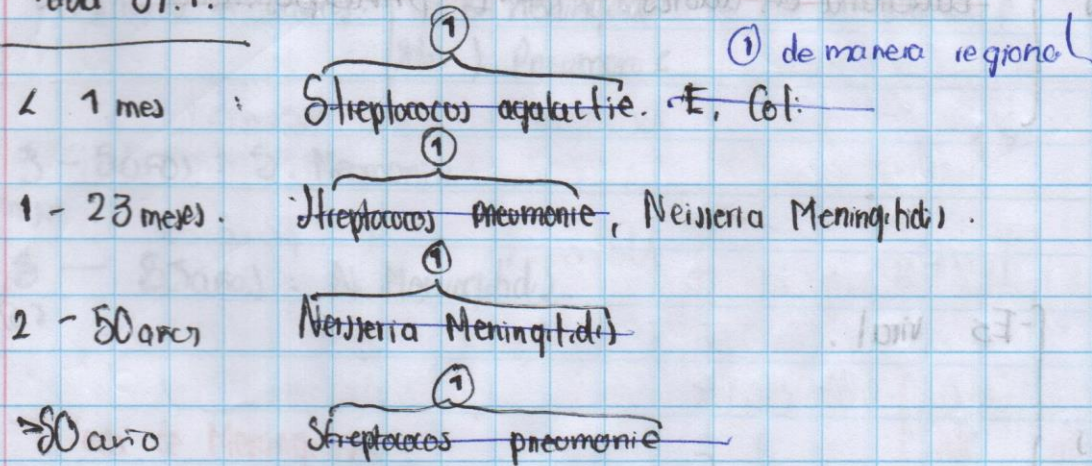 ① de manera regional
①
< 1 mes : Streptococos agalactie. E. Coli
①
1 - 23 meses. Streptococos pneomonie, Neisseria Meningitidis.
①
2 - 50 años Neisseria Meningitidis
Es viral.
①
>50 año Streptococos pneomonie